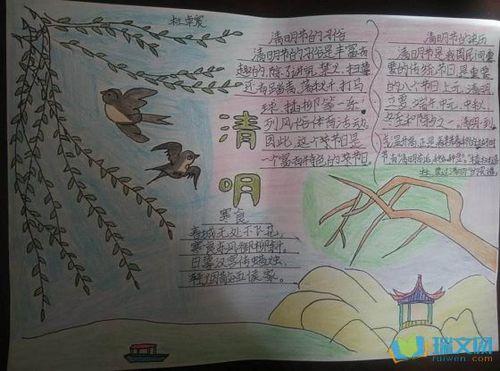 清明节的习俗
清明节的习俗是丰富有
趣的,除了讲究禁火、扫墓
还有踏青、荡秋千、打马
球、插柳等一系
列风俗体育活动
因此,这个节日是
一个富有特色的节日
清明节的来历
清明节是我国民间重
要的传统节日,是重要
的八个节日上元、清明、
立夏、端午、中元、中秋、
冬至和除夕之一。清明
清明
寒食
春城无处不飞花,
寒食东风御柳斜。
日暮汉宫传蜡烛,
轻烟散入五侯家。
瑞文网
ruiwen.com